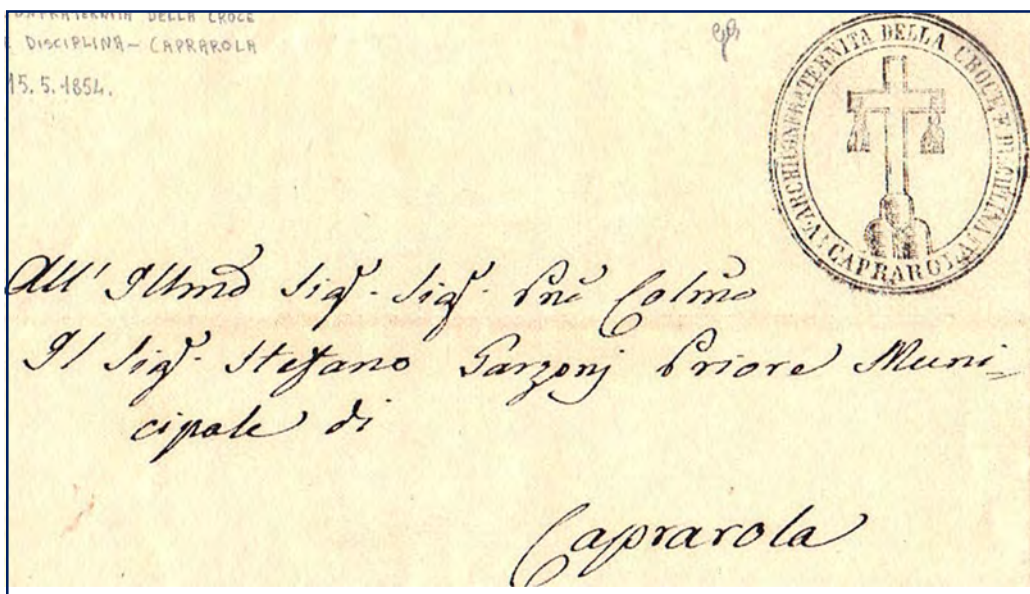 CONFRATERNITA DELLA CROCE
E DISCIPLINA - CAPRAROLA
15.5.1854.
V. ARCHICONFRATERNITA DELLA CROCE, E DISCIPLINA
CAPRAROLA
All' Illmo Sig.r Sig.r Pne Colmo
Il Sig.r Stefano Garzonj Priore Muni-
cipale di
Caprarola